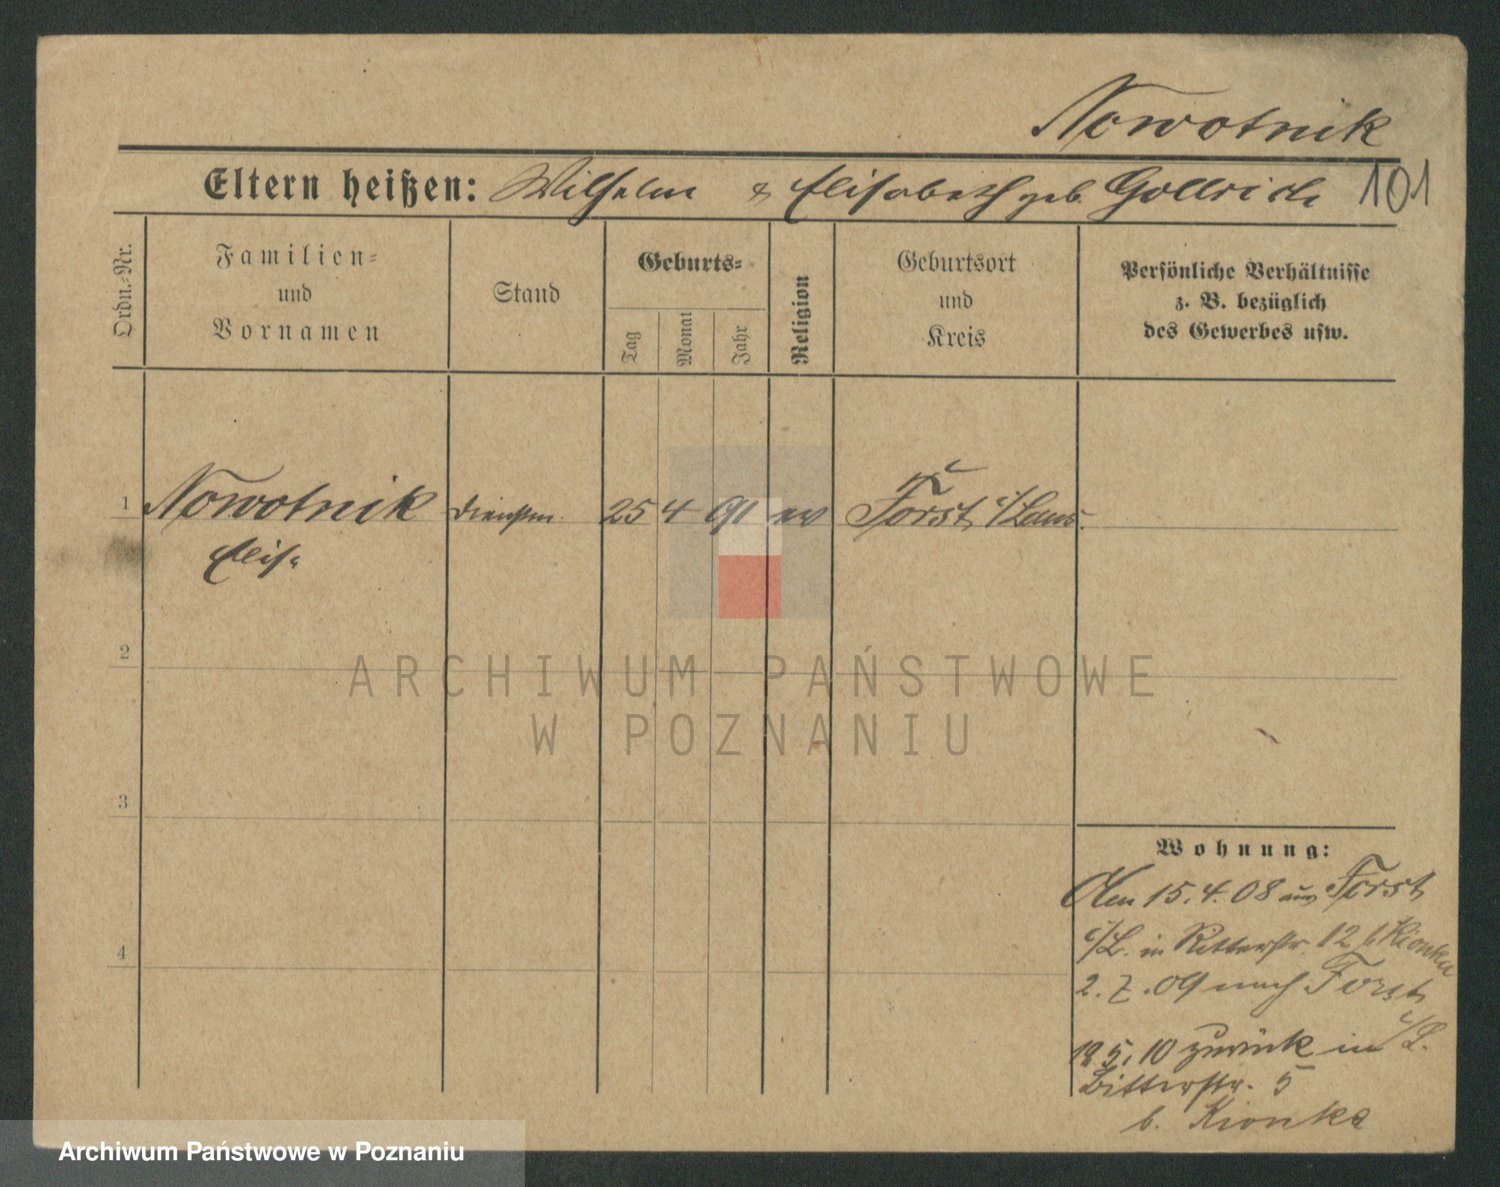 Nowotnik
Eltern heißen: Wilhelm & Elisabeth geb. Gollrich 101
Ordn.-Nr.
Familien-
und
Vornamen
Stand
Geburts-
Tag
Monat
Jahr
Religion
Geburtsort
und
Kreis
Persönliche Verhältnisse
z. B. bezüglich
des Gewerbes usw.
1 Nowotnik Dienstm. 25 4 91 ev Forst i/Laus.
Elis.
2
ARCHIWUM PAŃSTWOWE
W POZNANIU
3
Wohnung:
Am 15.4.08 aus Forst
i/L. in Ritterstr. 12 b Kionka
4
2.7.09 nach Forst
i/L.
19.5.10 zurück in
Ritterstr. 5
b. Kionka
Archiwum Państwowe w Poznaniu